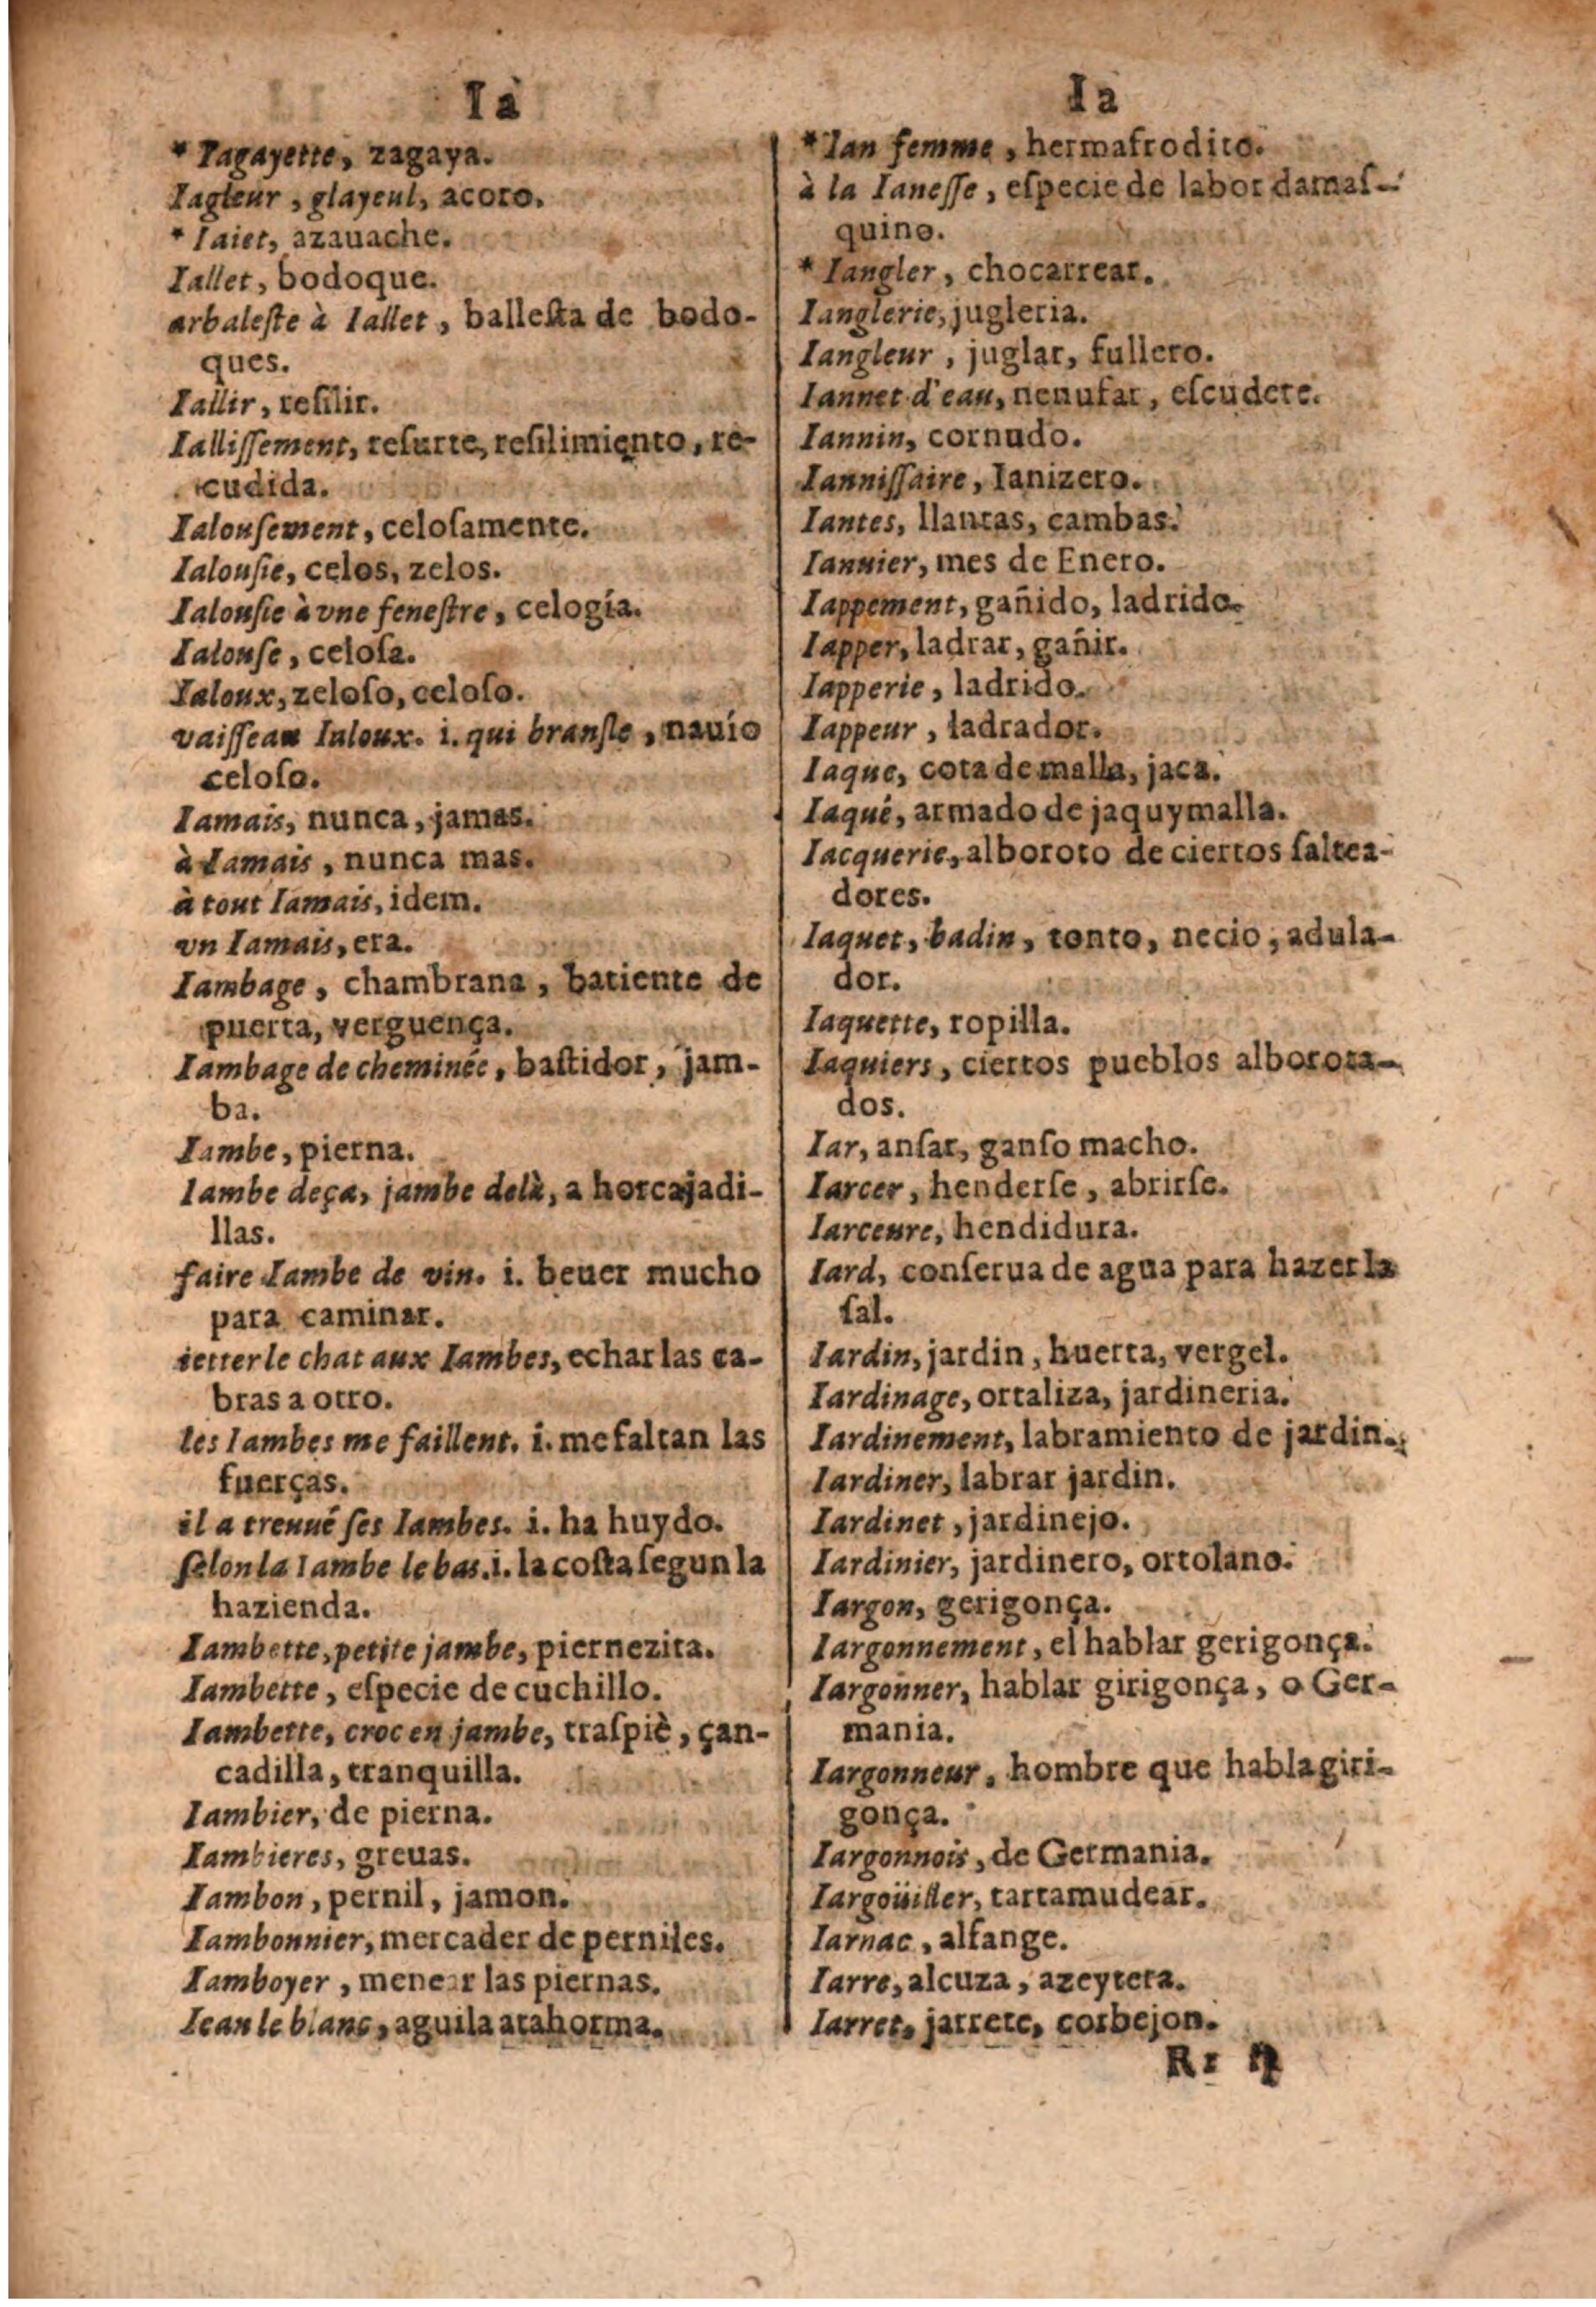 Ia
* Iagayette, zagaya.
Iagleur, glayeul, acoro.
* Iaiet, azauache.
Iallet, bodoque.
arbaleſte à Iallet, balleſta de bodo-
ques.
Iallir, reſilir.
Ialliſſement, reſurte, reſilimiento, re-
cudida.
Ialouſement, celoſamente.
Ialouſie, celos, zelos.
Ialouſie à vne feneſtre, celogía.
Ialouſe, celoſa.
Ialoux, zeloſo, celoſo.
vaiſſeau Ialoux. i. qui branſle, nauío
celoſo.
Iamais, nunca, jamas.
à Iamais, nunca mas.
à tout Iamais, idem.
vn Iamais, era.
Iambage, chambrana, batiente de
puerta, verguença.
Iambage de cheminée, baſtidor, jam-
ba.
Iambe, pierna.
Iambe deça, jambe delà, a horcajadi-
llas.
faire Iambe de vin. i. beuer mucho
para caminar.
ietter le chat aux Iambes, echar las ca-
bras a otro.
les Iambes me faillent. i. me faltan las
fuerças.
il a treuué ſes Iambes. i. ha huydo.
ſelon la Iambe le bas. i. la coſta ſegun la
hazienda.
Iambette, petite jambe, piernezita.
Iambette, eſpecie de cuchillo.
Iambette, croc en jambe, traſpiè, çan-
cadilla, tranquilla.
Iambier, de pierna.
Iambieres, greuas.
Iambon, pernil, jamon.
Iambonnier, mercader de perniles.
Iamboyer, menear las piernas.
Iean le blanc, aguila atahorma.
Ia
* Ian femme, hermafrodito.
à la Ianeſſe, eſpecie de labor damaſ-
quino.
* Iangler, chocarrear.
Ianglerie, jugleria.
Iangleur, juglar, fullero.
Iannet d'eau, nenufar, eſcudete.
Iannin, cornudo.
Ianniſſaire, Ianizero.
Iantes, llantas, cambas.
Ianuier, mes de Enero.
Iappement, gañido, ladrido.
Iapper, ladrar, gañir.
Iapperie, ladrido.
Iappeur, ladrador.
Iaque, cota de malla, jaca.
Iaqué, armado de jaquymalla.
Iacquerie, alboroto de ciertos ſaltea-
dores.
Iaquet, badin, tonto, necio, adula-
dor.
Iaquette, ropilla.
Iaquiers, ciertos pueblos alborota-
dos.
Iar, anſar, ganſo macho.
Iarcer, henderſe, abrirſe.
Iarceure, hendidura.
Iard, conſerua de agua para hazer la
ſal.
Iardin, jardin, huerta, vergel.
Iardinage, ortaliza, jardineria.
Iardinement, labramiento de jardin.
Iardiner, labrar jardin.
Iardinet, jardinejo.
Iardinier, jardinero, ortolano.
Iargon, gerigonça.
Iargonnement, el hablar gerigonça.
Iargonner, hablar girigonça, o Ger-
mania.
Iargonneur, hombre que habla giri-
gonça.
Iargonnois, de Germania.
Iargoüiller, tartamudear.
Iarnac, alfange.
Iarre, alcuza, azeytera.
Iarret, jarrete, corbejon.